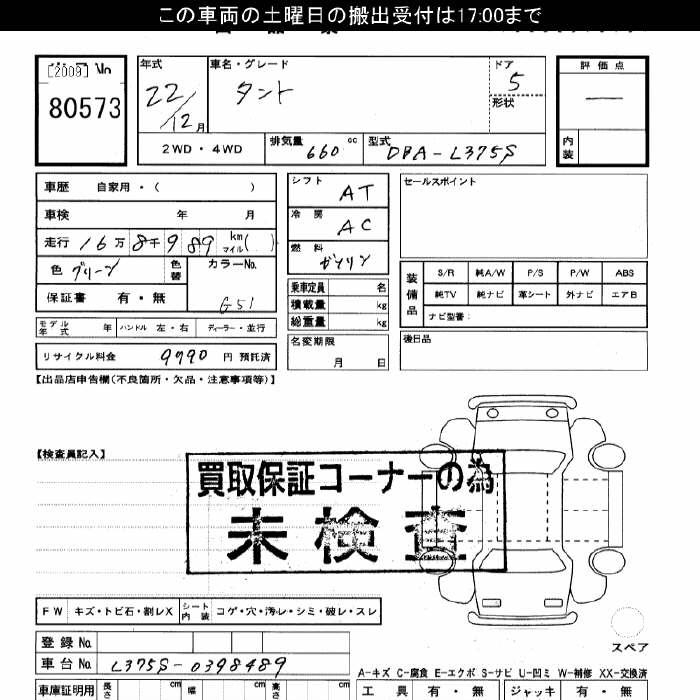 この車両の土曜日の搬出受付は17:00まで
[2009] No
80573
年式 車名・グレード ドア 評価点
22/12月 タント 5
形状
2WD・4WD 排気量 660 cc 型式 DBA-L375S 内装
車歴 自家用・( )
車検 年 月
走行 16万8千989 km マイル( )
色 グリーン 色替 カラーNo. G51
保証書 有・無
モデル年式 年 ハンドル 左・右 ディーラー・並行
リサイクル料金 9790 円 預託済
シフト AT
冷房 AC
燃料 ガソリン
乗車定員 名
積載量 kg
総重量 kg
名変期限
月 日
セールスポイント
装備品 S/R 純A/W P/S P/W ABS
純TV 純ナビ 革シート 外ナビ エアB
ナビ型番:
後日品
【出品店申告欄(不良箇所・欠品・注意事項等)】
【検査員記入】
買取保証コーナーの為
未検査
FW キズ・トビ石・割レX シート内装 コゲ・穴・汚レ・シミ・破レ・スレ
スペア
登録No.
車台No. L375S-0398489
A-キズ C-腐食 E-エクボ S-サビ U-凹ミ W-補修 XX-交換済
車庫証明用 長さ cm 幅 cm 高さ cm
工具 有・無 ジャッキ 有・無